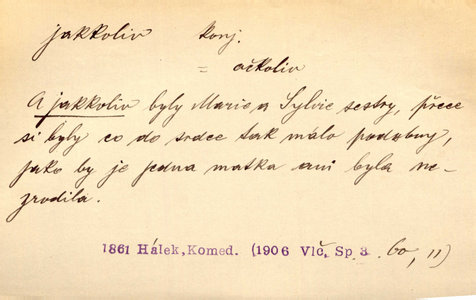 jakkoliv konj.
= ačkoliv
A jakkoliv byly Marie a Sylvie sestry, přece
si byly co do srdce tak málo podobny,
jako by je jedna matka ani byla ne-
zrodila.
1861 Hálek, Komed. (1906 Vlč, Sp 3 60, 11)